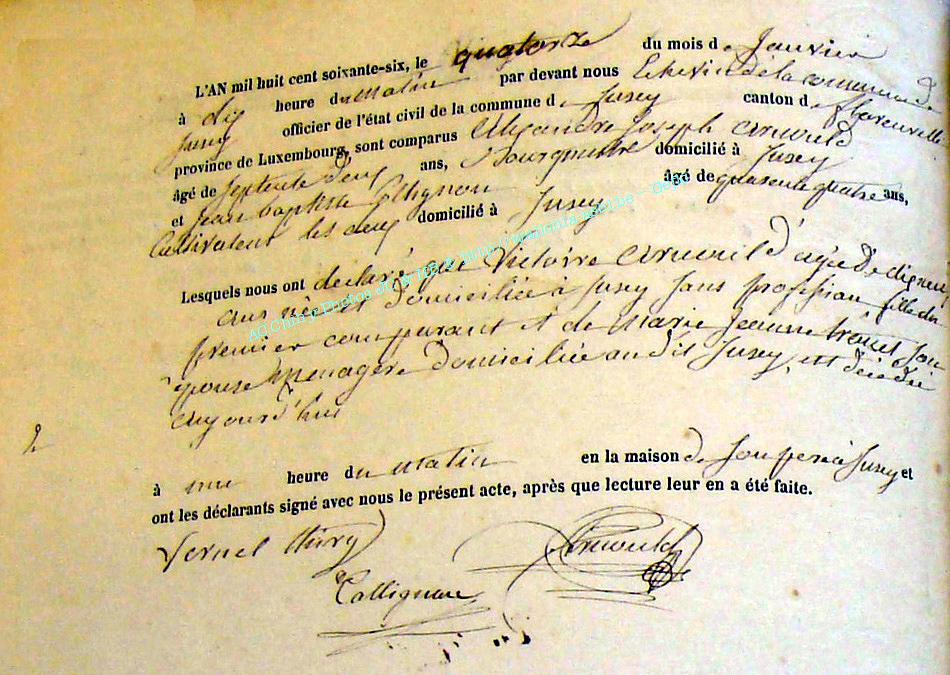 L'AN mil huit cent soixante-six, le quatorze du mois de Janvier
à dix heure du matin par devant nous Echevin de la commune de
Jusey officier de l'état civil de la commune de Jusey canton de
province de Luxembourg, sont comparus Alexandre Joseph Arnould
âgé de septente deux ans, Bourgmestre domicilié à Jusey
et Jean baptiste Collignon âgé de quarente quatre ans,
Cultivateur les deux domicilié à Jusey
Lesquels nous ont déclaré que Victoire Arnould agée de
ans née et domiciliée à Jusey sans profession fille du
premier comparant et de Marie Jeanne son
épouse ménagère domiciliée au dit Jusey, est décédée
aujourd'hui
2
à une heure du matin en la maison de son père à Jusey et
ont les déclarants signé avec nous le présent acte, après que lecture leur en a été faite.
Arnould
Collignon